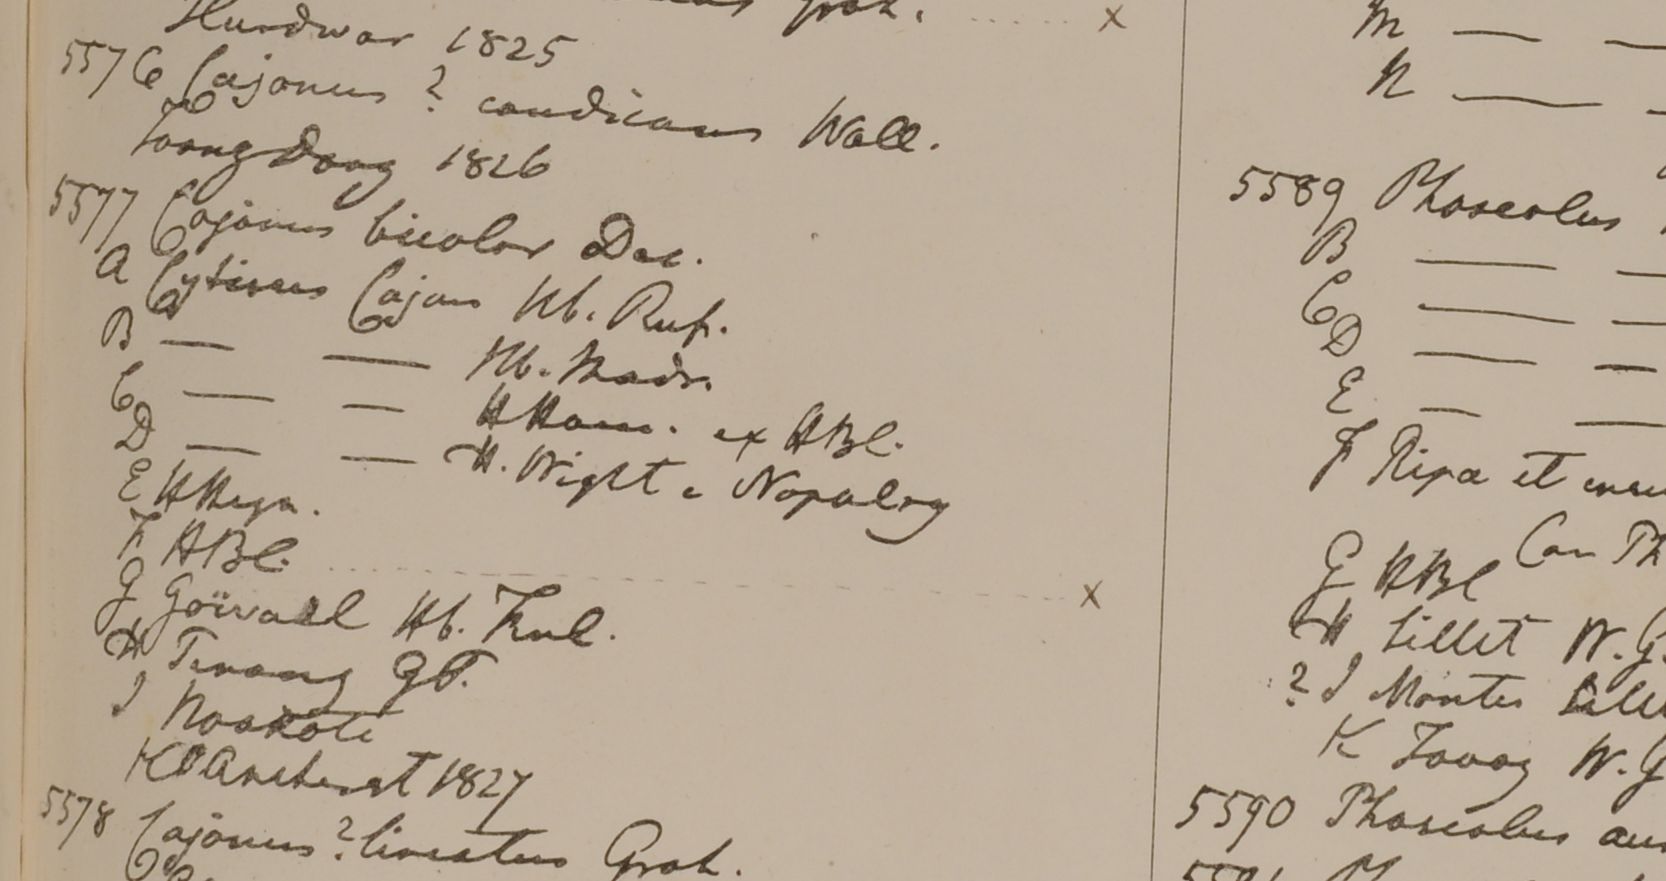 Hurdwar 1825
5576 Cajanus ? candicans Wall.
Toong Dong 1826
5577 Cajanus bicolor Dec.
A Cytisus Cajan Hb. Ruf.
B — — Hb. Madr.
C — — HHam. ex HBC.
D — — H. Wight e Nopalry
E HHeyn.
F HBC.
G Goüall Hb. Finl.
H Tenang GP.
I Noakote
K Amherst 1827
5578 Cajanus ? lineatus Grah.
M — —
N — —
5589 Phaseolus
B — —
C — —
D — —
E — —
F Ripa et
Can Ph
G HBC
H Sillet W. G.
? I Montes Sille
K Tavoy W. G
5590 Phaseolus